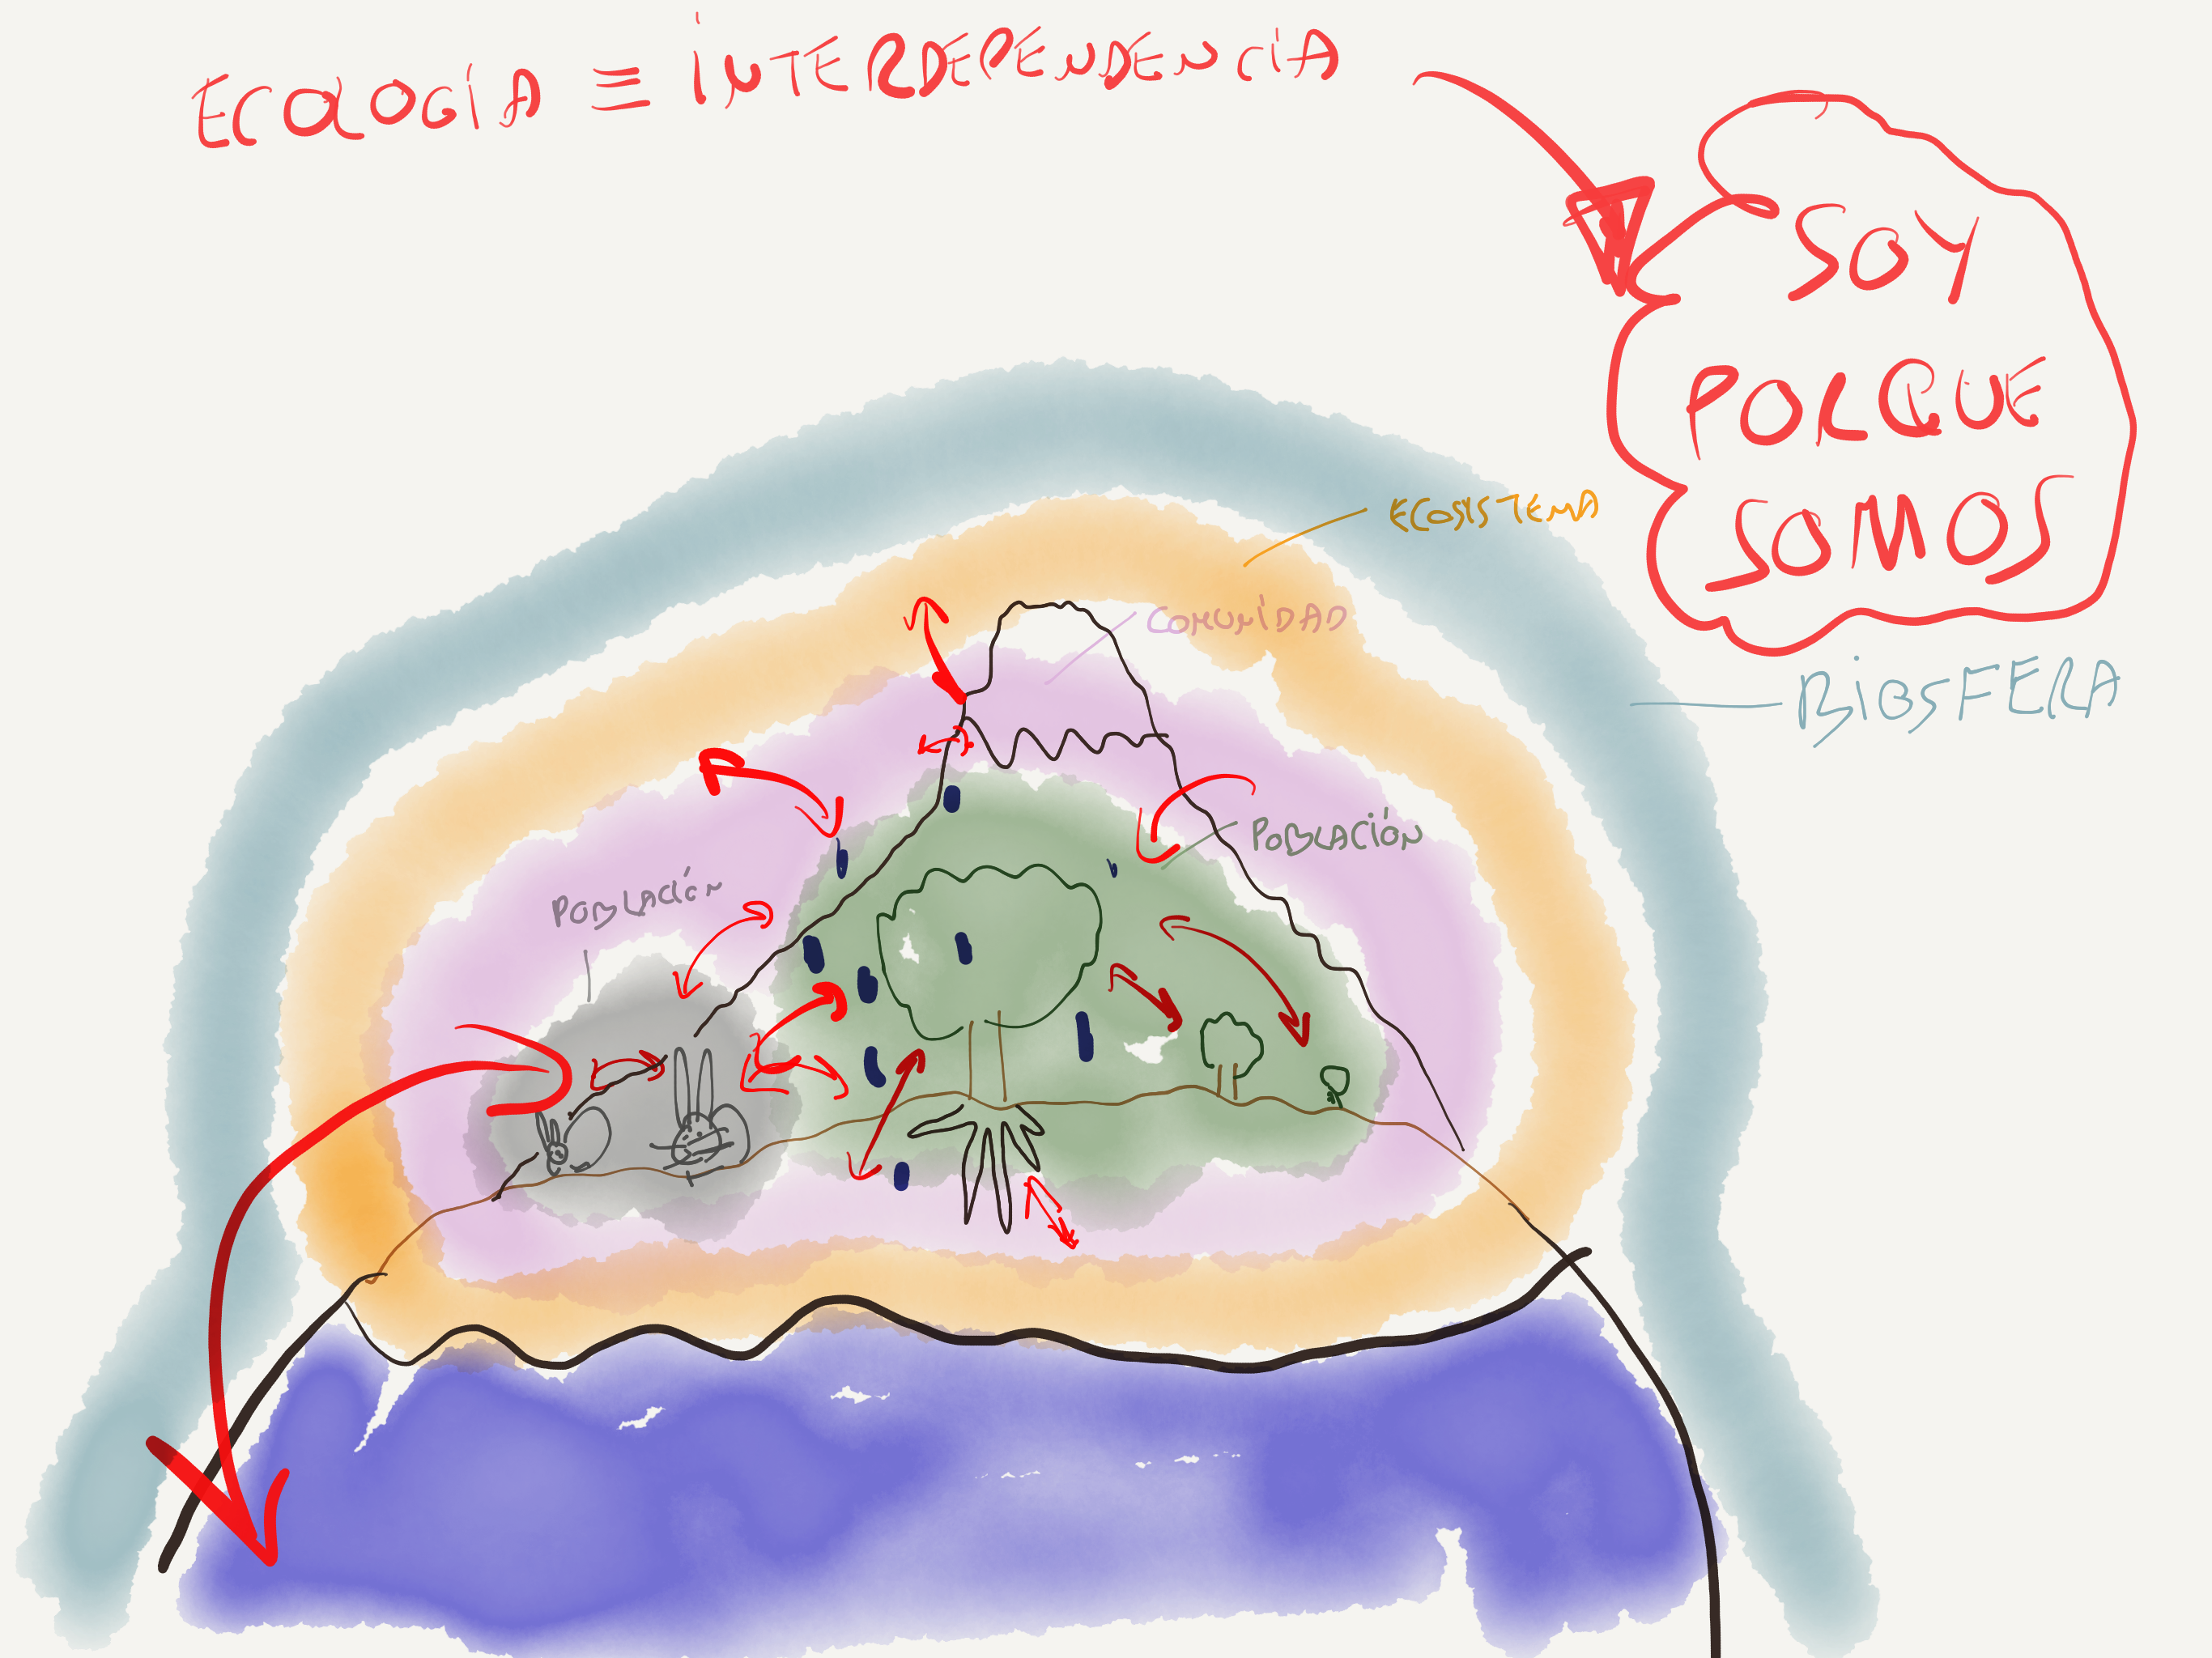 ECOLOGÍA ≡ INTERDEPENDENCIA
SOY
PORQUE
SOMOS
ECOSISTEMA
COMUNIDAD
BIOSFERA
POBLACIÓN
POBLACIÓN